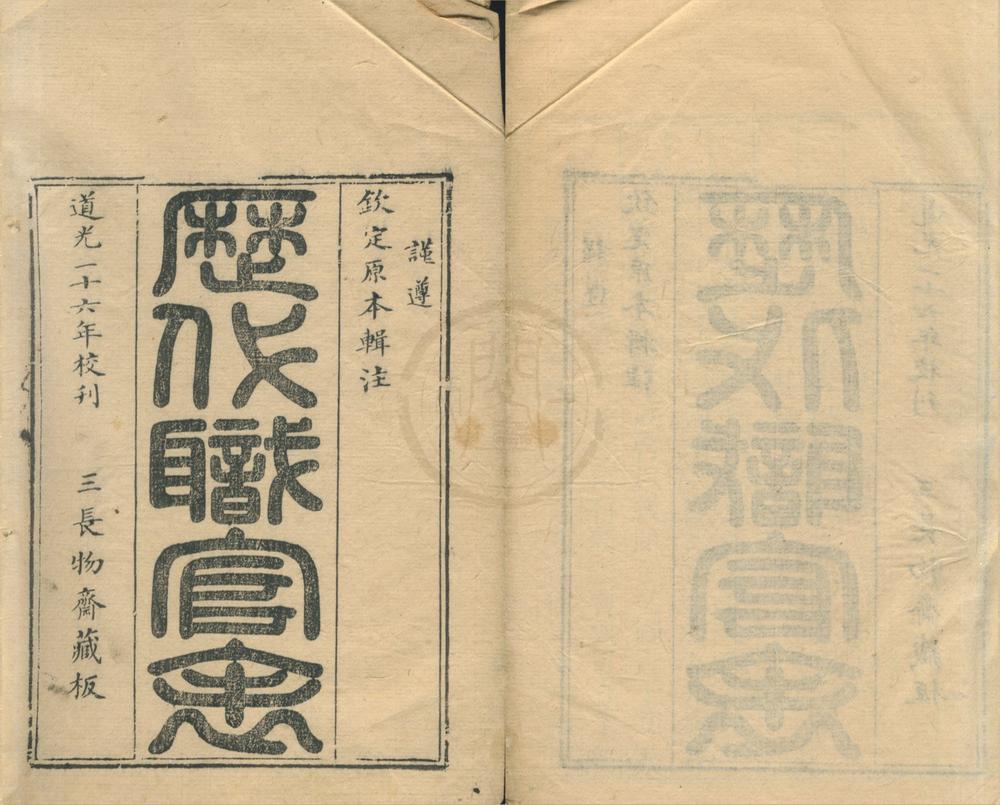 謹遵
欽定原本輯注
歷代職官表
道光二十六年校刊 三長物齋藏板